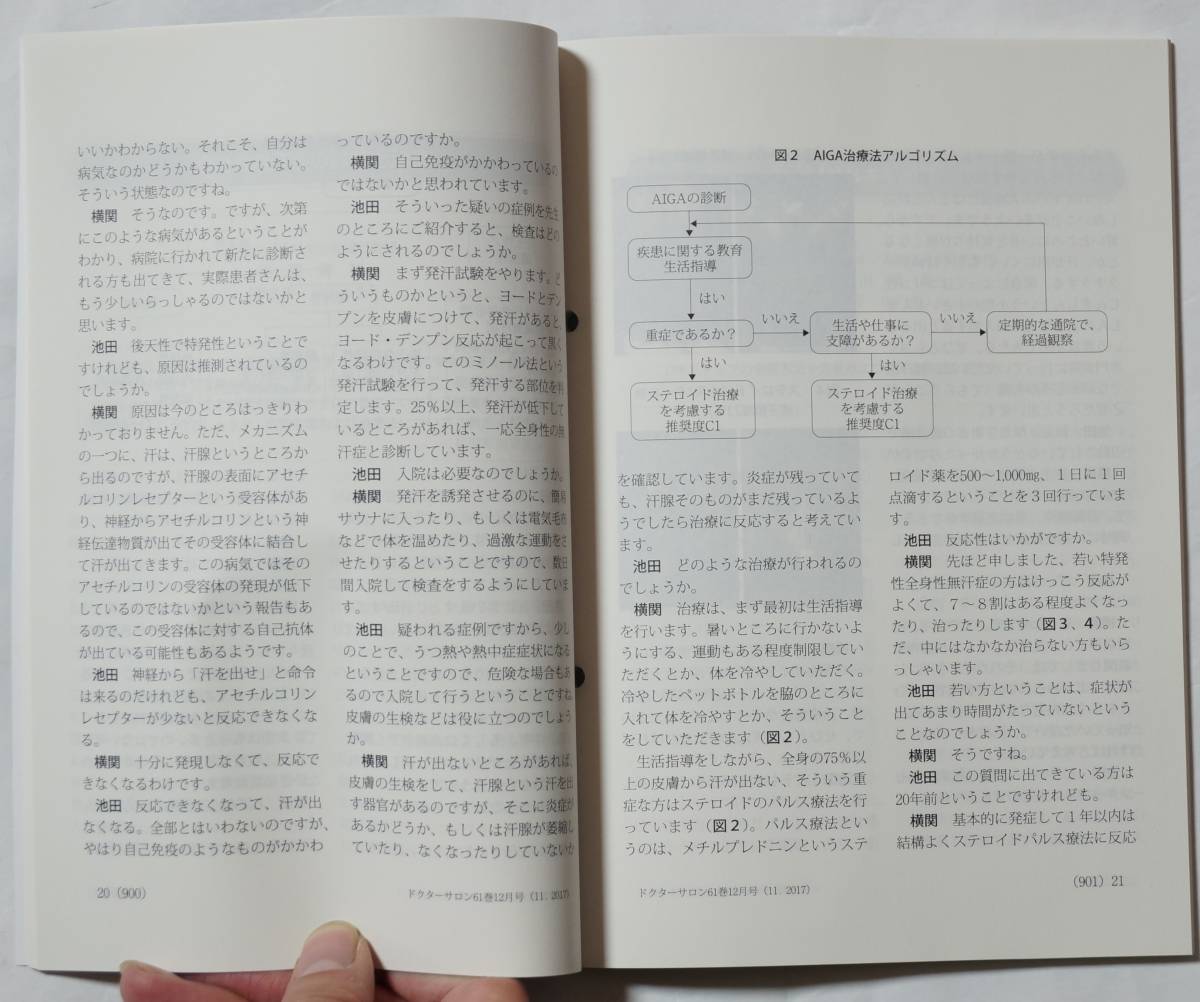 いいかわからない。それこそ、自分は
病気なのかどうかもわかっていない。
そういう状態なのですね。
横関　そうなのです。ですが、次第
にこのような病気があるということが
わかり、病院に行かれて新たに診断さ
れる方も出てきて、実際患者さんは、
もう少しいらっしゃるのではないかと
思います。
池田　後天性で特発性ということで
すけれども、原因は推測されているの
でしょうか。
横関　原因は今のところはっきりわ
かっておりません。ただ、メカニズム
の一つに、汗は、汗腺というところか
ら出るのですが、汗腺の表面にアセチ
ルコリンレセプターという受容体があ
り、神経からアセチルコリンという神
経伝達物質が出てその受容体に結合し
て汗が出てきます。この病気ではその
アセチルコリンの受容体の発現が低下
しているのではないかという報告もあ
るので、この受容体に対する自己抗体
が出ている可能性もあるようです。
池田　神経から「汗を出せ」と命令
は来るのだけれども、アセチルコリン
レセプターが少ないと反応できなくな
る。
横関　十分に発現しなくて、反応で
きなくなるわけです。
池田　反応できなくなって、汗が出
なくなる。全部とはいわないのですが、
やはり自己免疫のようなものがかかわ
っているのですか。
横関　自己免疫がかかわっているの
ではないかと思われています。
池田　そういった疑いの症例を先生
のところにご紹介すると、検査はどの
ようにされるのでしょうか。
横関　まず発汗試験をやります。ど
ういうものかというと、ヨードとデン
プンを皮膚につけて、発汗があると、
ヨード・デンプン反応が起こって黒く
なるわけです。このミノール法という
発汗試験を行って、発汗する部位を判
定します。25％以上、発汗が低下して
いるところがあれば、一応全身性の無
汗症と診断しています。
池田　入院は必要なのでしょうか。
横関　発汗を誘発させるのに、簡易
サウナに入ったり、もしくは電気毛布
などで体を温めたり、過激な運動をさ
せたりするということですので、数日
間入院して検査をするようにしていま
す。
池田　疑われる症例ですから、少し
のことで、うつ熱や熱中症症状になる
ということですので、危険な場合もあ
るので入院して行うということですね。
皮膚の生検などは役に立つのでしょう
か。
横関　汗が出ないところがあれば、
皮膚の生検をして、汗腺という汗を出
す器官があるのですが、そこに炎症が
あるかどうか、もしくは汗腺が萎縮し
ていたり、なくなったりしていないか
20（900）
ドクターサロン61巻12月号（11．2017）
図２　AIGA治療法アルゴリズム
AIGAの診断
疾患に関する教育
生活指導
はい
重症であるか？
いいえ
生活や仕事に
支障があるか？
いいえ
定期的な通院で、
経過観察
はい
はい
ステロイド治療
を考慮する
推奨度C1
ステロイド治療
を考慮する
推奨度C1
を確認しています。炎症が残っていて
も、汗腺そのものがまだ残っているよ
うでしたら治療に反応すると考えてい
ます。
池田　どのような治療が行われるの
でしょうか。
横関　治療は、まず最初は生活指導
を行います。暑いところに行かないよ
うにする、運動もある程度制限してい
ただくとか、体を冷やしていただく。
冷やしたペットボトルを脇のところに
入れて体を冷やすとか、そういうこと
をしていただきます（図２）。
生活指導をしながら、全身の75％以
上の皮膚から汗が出ない、そういう重
症な方はステロイドのパルス療法を行
っています（図２）。パルス療法とい
うのは、メチルプレドニンというステ
ロイド薬を500～1,000㎎、１日に１回
点滴するということを３回行っていま
す。
池田　反応性はいかがですか。
横関　先ほど申しました、若い特発
性全身性無汗症の方はけっこう反応が
よくて、７～８割はある程度よくなっ
たり、治ったりします（図３、４）。た
だ、中にはなかなか治らない方もいら
っしゃいます。
池田　若い方ということは、症状が
出てあまり時間がたっていないという
ことなのでしょうか。
横関　そうですね。
池田　この質問に出てきている方は
20年前ということですけれども。
横関　基本的に発症して１年以内は
結構よくステロイドパルス療法に反応
ドクターサロン61巻12月号（11．2017）
（901）21